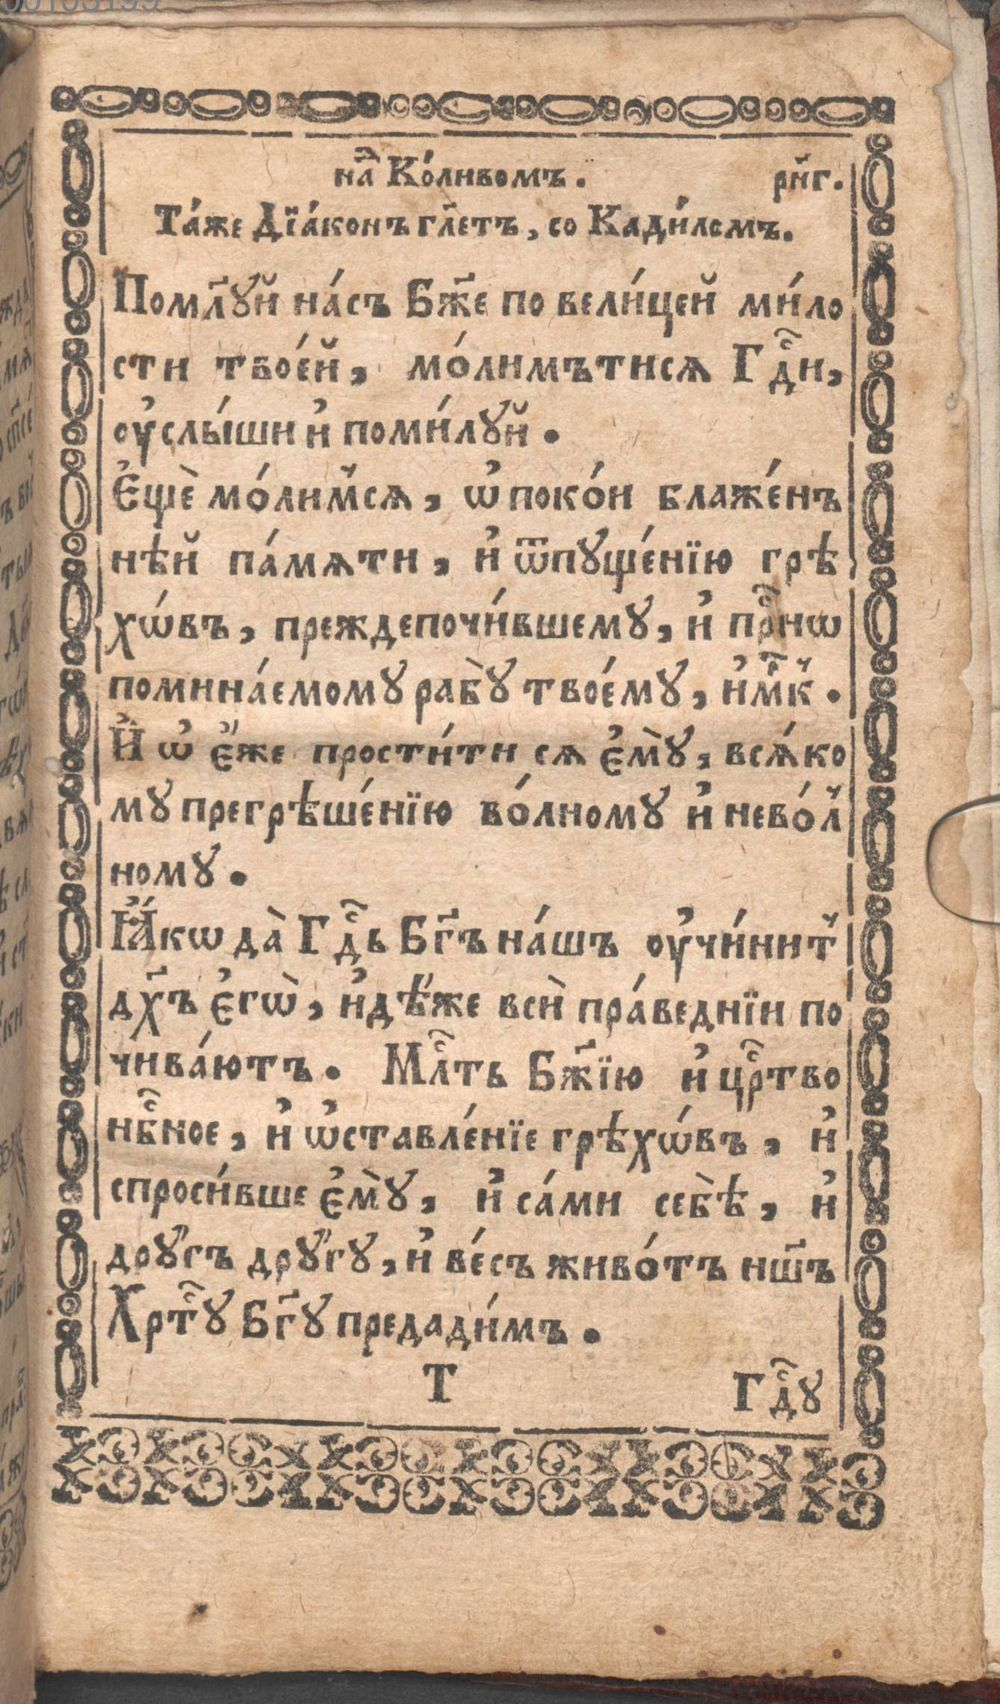 наⷣ Ко́ливомъ. рн҃г.
Та́же Дїа́конъ гл҃етъ, со Кади́ломъ.
Помл҃ꙋй на́съ Бж҃е по вели́цей ми́ло
сти твое́й, мо́лимътисѧ Гдⷭ҇и,
ᲂу҆слы́ши и҆ поми́лꙋй.
Е҆щѐ мо́лимсѧ, ѡ҆ поко́и блаже́нъ
нѣй па́мѧти, и҆ ѿпꙋще́нїю грѣ
хѡ́въ, преждепочи́вшемꙋ, и҆ прⷭ҇нѡ
помина́емомꙋ рабꙋ̀ твоемꙋ, и҆мⷬ҇к.
И҆ ѡ҆ е҆́же прости́ти сѧ е҆мꙋ̀, всѧ́ко
мꙋ прегрѣше́нїю во́лномꙋ и҆ нево́л
номꙋ.
Ꙗ҆́кѡ да̀ Гдⷭ҇ь Бг҃ъ на́шъ ᲂу҆чини́т
дх҃ъ е҆гѡ̀, и҆дѣ́же всѝ пра́веднїи по
чива́ютъ. Млⷭ҇ть Бж҃їю и҆ црⷭ҇тво
нбⷭ҇ное, и҆ ѡ҆ставле́нїе грѣхѡ́въ, и҆
спроси́вше е҆мꙋ̀, и҆ са́ми себѐѣ, и҆
дрꙋ́гъ дрꙋ́гꙋ, и҆ ве́съ живо́тъ нш҃ъ
Хртⷭ҇ꙋ Бг҃ꙋ предади́мъ.
Т Гдⷭ҇ꙋ